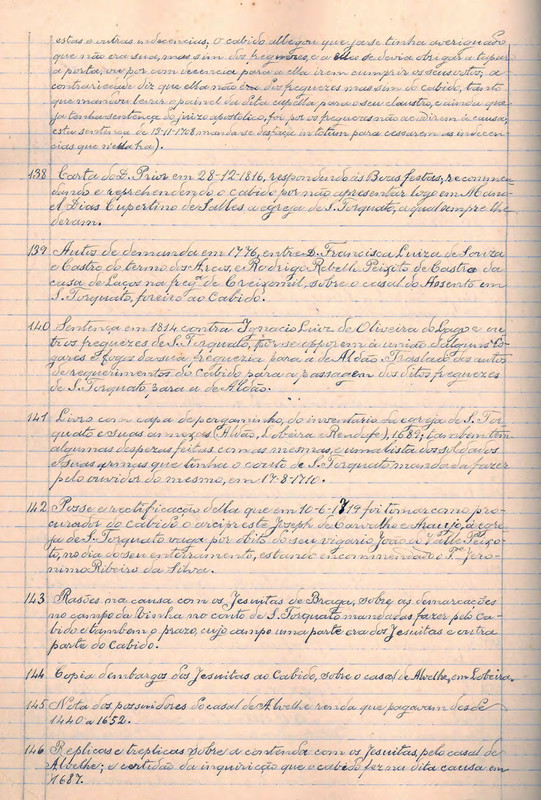 estas e outras indecencias; o cabido allegou que ja se tinha averiguado
que não era sua, mas sim dos freguezes, e a elles se devia obrigar a tapar
a porta, ou por com decencia para a ella irem cumprir os seus votos; a
contrariedade diz que ella não era dos freguezes mas sim do cabido, tanto
que mandou tirar o painel da dita capella para o seu claustro, e ainda que
ja tenha sentença do juizo apostolico, foi por os freguezes não acodirem á causa;
esta sentença de 13-11-1708 manda se despeja in totum para cessarem as indecen-
cias que n'ella ha).
138 Carta do D. Prior em 28-12-1816, respondendo ás Boas festas; recommen-
dando e reprehendendo o cabido por não apresentar logo em Mano-
el Dias Cupertino de Salles a egreja de S. Torquato, a qual sempre lhe
deram.
139 Autos de demanda em 1776, entre D. Francisca Luiza de Souza
e Castro do termo dos Arcos, e Rodrigo Rebello Peixoto de Castro da
casa de Lagos na freg.ª de Creixomil, sobre o casal do Assento em
S. Torquato, foreiro ao Cabido.
140 Sentença em 1814 contra Ignacio Luiz de Oliveira do Lago e ou-
tros freguezes de S. Torquato, por se opporem á união de alguns lo-
gares e fogos da sua freguezia para a de Aldão. Traslado dos autos
de requerimentos do Cabido para a passagem dos ditos freguezes
de S. Torquato para a de Aldão.
141 Livro com capa de pergaminho, do inventario da egreja de S. Tor-
quato e suas annexas (Aldão, Lobeira e Rendufe), 1689; tambem tem
algumas despezas feitas com as mesmas, e uma lista dos soldados
e suas armas que tinha o couto de S. Torquato mandada fazer
pelo ouvidor do mesmo, em 17-8-1710.
142 Posse e rectificação della que em 10-6-1719 foi tomar como pro-
curador do cabido o arcipreste Joseph de Carvalho e Araujo, á egre-
ja de S. Torquato vaga por obito do seu vigario João do Valle Peixo-
to, no dia do seu enterramento, estando encommendado o P.e Jero-
nimo Ribeiro da Silva.
143 Rasões na causa com os Jesuitas de Braga, sobre as demarcações
no campo da Vinha no couto de S. Torquato mandadas fazer pelo Ca-
bido e tambem o prazo, cujo campo uma parte era dos Jesuitas e outra
parte do Cabido.
144 Copia d'embargos dos Jesuitas ao Cabido, sobre o casal de Alvelhe, em Lobeira.
145 Nota dos possuidores do casal de Alvelhe e renda que pagavam desde
1440 a 1652.
146 Replicas e treplicas sobre a contenda com os Jesuitas, pelo casal de
Albelhe; e certidão da inquirição que o cabido fez na dita causa em
1687.